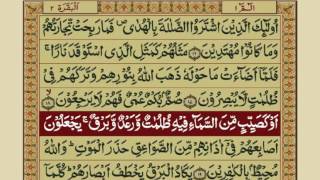 الٓمّٓ ١
اَلْبَقَرَة ٢
اُولٰٓئِكَ الَّذِیْنَ اشْتَرَوُا الضَّلٰلَةَ بِالْهُدٰی ۪ فَمَا رَبِحَتْ تِّجَارَتُهُمْ
وَمَا كَانُوْا مُهْتَدِیْنَ ۝۱۶ مَثَلُهُمْ كَمَثَلِ الَّذِی اسْتَوْقَدَ نَارًا ۚ
فَلَمَّاۤ اَضَآءَتْ مَا حَوْلَهٗ ذَهَبَ اللّٰهُ بِنُوْرِهِمْ وَتَرَكَهُمْ فِیْ
ظُلُمٰتٍ لَّا یُبْصِرُوْنَ ۝۱۷ صُمٌّۢ بُكْمٌ عُمْیٌ فَهُمْ لَا یَرْجِعُوْنَ ۝۱۸
اَوْ كَصَیِّبٍ مِّنَ السَّمَآءِ فِیْهِ ظُلُمٰتٌ وَّرَعْدٌ وَّبَرْقٌ ۚ یَجْعَلُوْنَ
اَصَابِعَهُمْ فِیْۤ اٰذَانِهِمْ مِّنَ الصَّوَاعِقِ حَذَرَ الْمَوْتِ ؕ وَاللّٰهُ
مُحِیْطٌۢ بِالْكٰفِرِیْنَ ۝۱۹ یَكَادُ الْبَرْقُ یَخْطَفُ اَبْصَارَهُمْ ؕ كُلَّمَاۤ